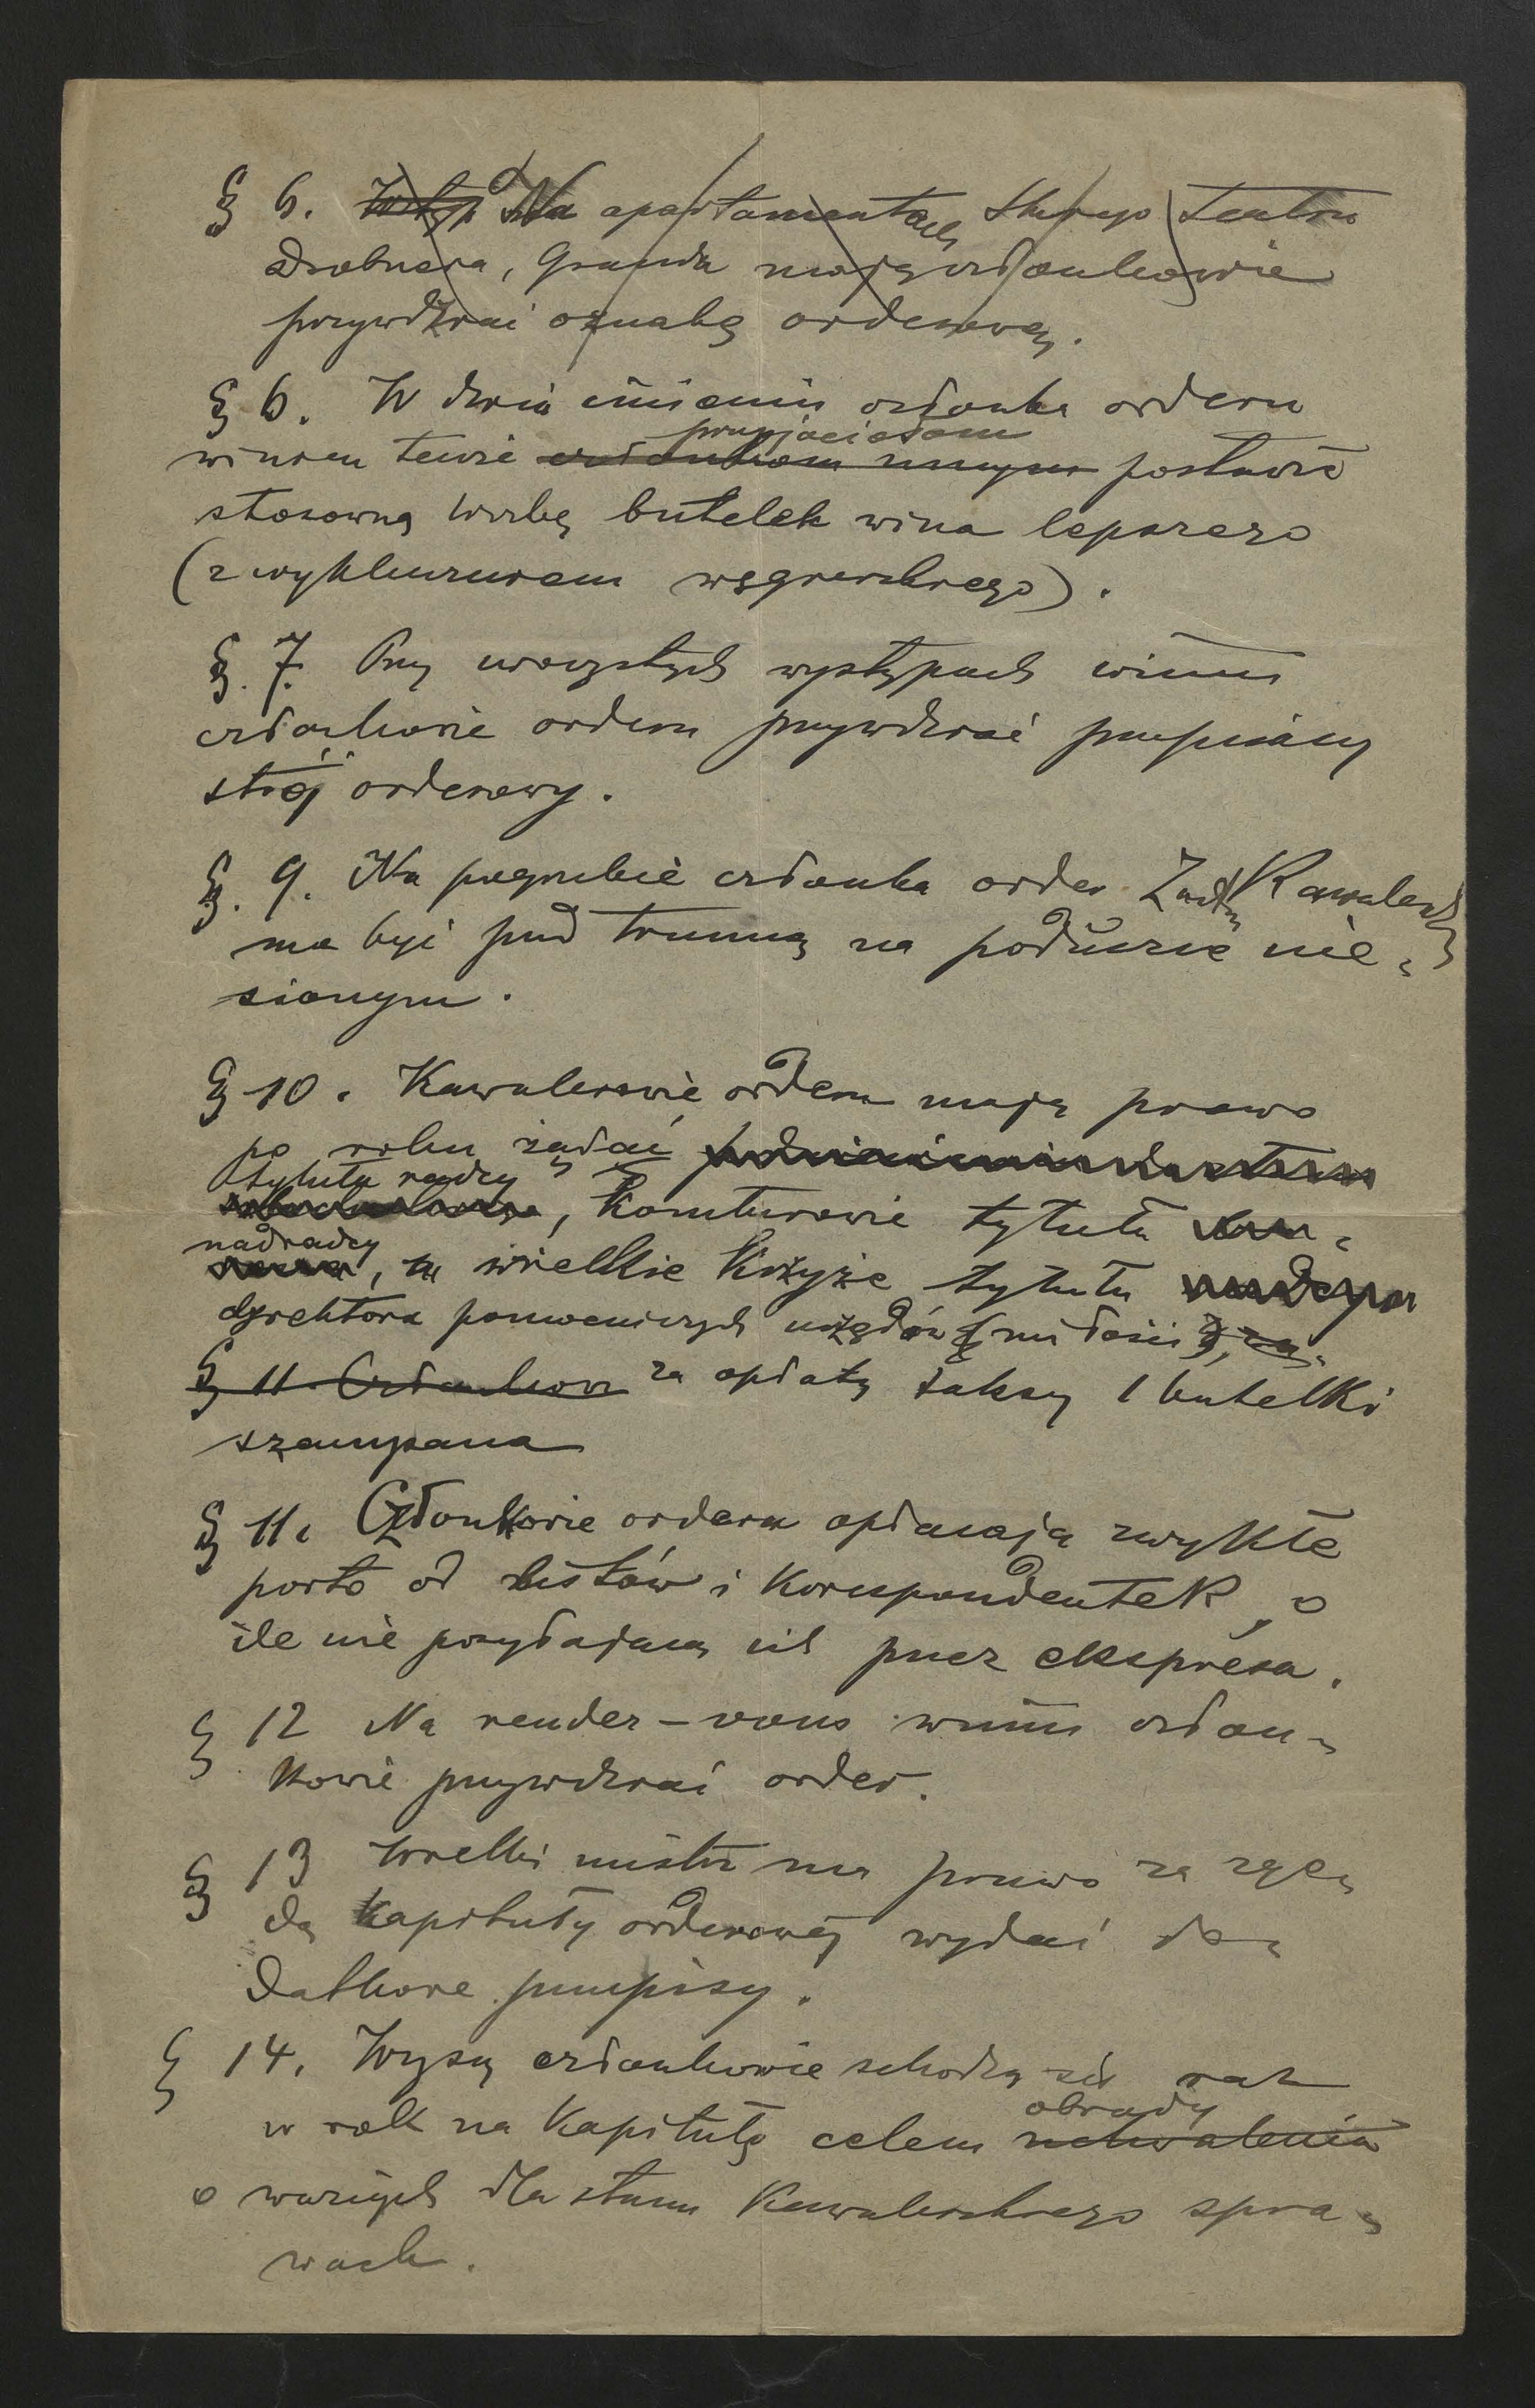 § 6. Wstęp Na apartamentach Starego Teatru
Drobnera, Granda mają członkowie
przywdziać oznakę orderową.
§ 6. W dniu imienin członka orderu
przyjaciołom
winien tenże członkom innym postawić
stosowną liczbę butelek wina lepszego
(z wykluczeniem węgierskiego).
§. 7. Przy uroczystych występach winni
członkowie orderu przywdziać przepisany
strój orderowy.
§. 9. Na pogrzebie członka order Kawalerski
ma być pod trumną na poduszce nie-
sionym.
§ 10. Kawalerowie orderu mają prawo
po roku żądać
tytułu radcy
, Komturowie tytułu
nadradcy
, a wielkie Krzyże tytułu
dyrektora pomocniczych urzędów (miłości),
§ 11. Członkowie za opłatą taksy 1 butelki
szampana
§ 11. Członkowie orderu opłacają zwykłe
porto od listów i korespondentek, o
ile nie przysłają ich przez ekspresa.
§ 12 Na rendez-vous winni człon-
kowie przywdziać order.
§ 13 Wielki mistrz ma prawo za zgo-
dą Kapituły orderowej wydać do-
datkowe przepisy.
§ 14. Wyżsi członkowie schodzą się raz
obrady
w rok na Kapitułę celem uchwalenia
o ważnych dla stanu Kawalerskiego spra-
wach.